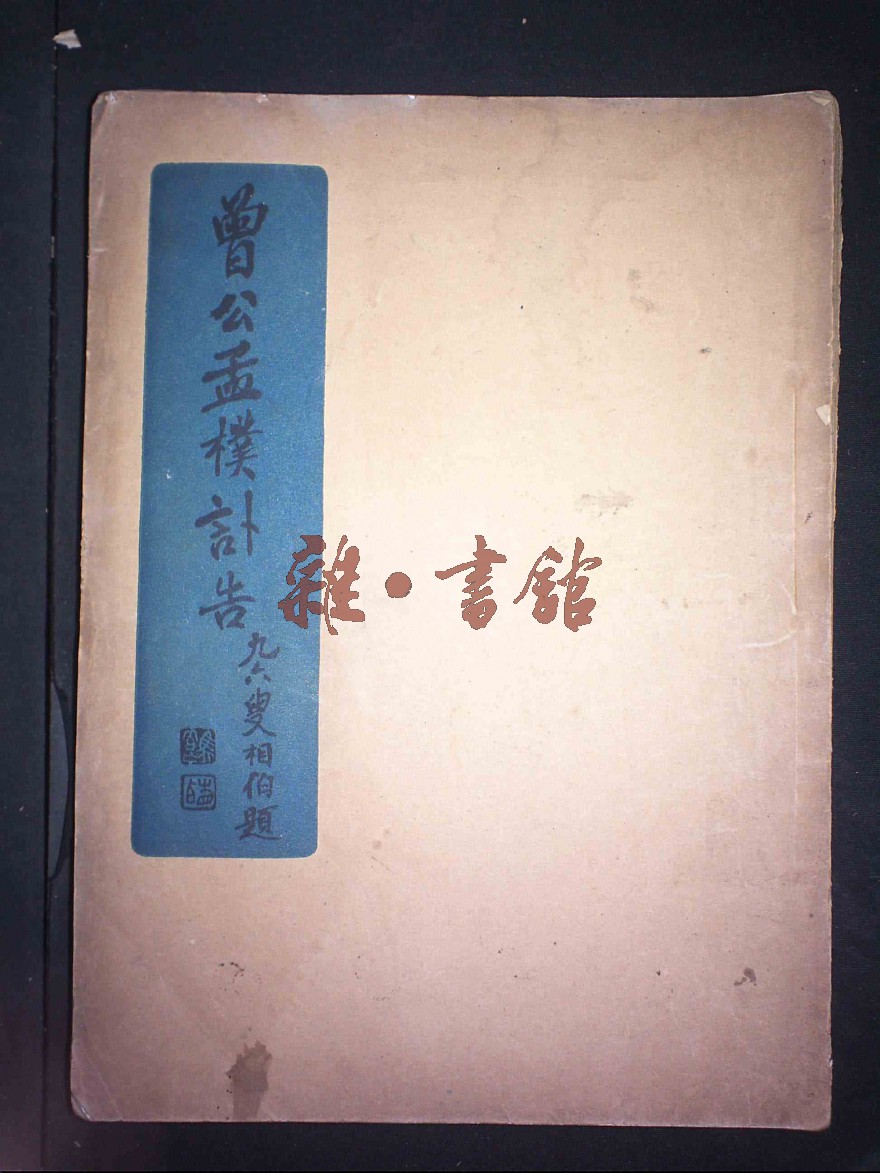 曾公孟樸訃告
九六叟相伯題
雜·書館